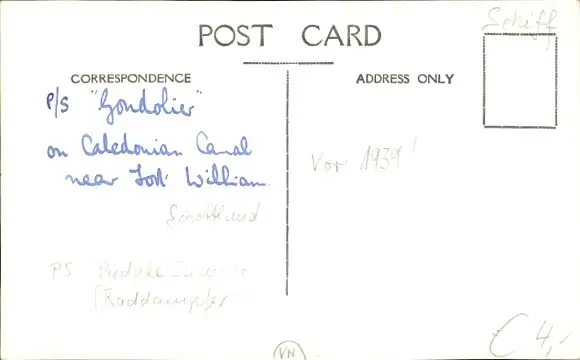 Schiff
POST CARD
CORRESPONDENCE
ADDRESS ONLY
P/S "Gondolier"
on Caledonian Canal
near Fort William.
Vor 1939!
Schottland
PS
(Raddampfer
VN
€ 4,-